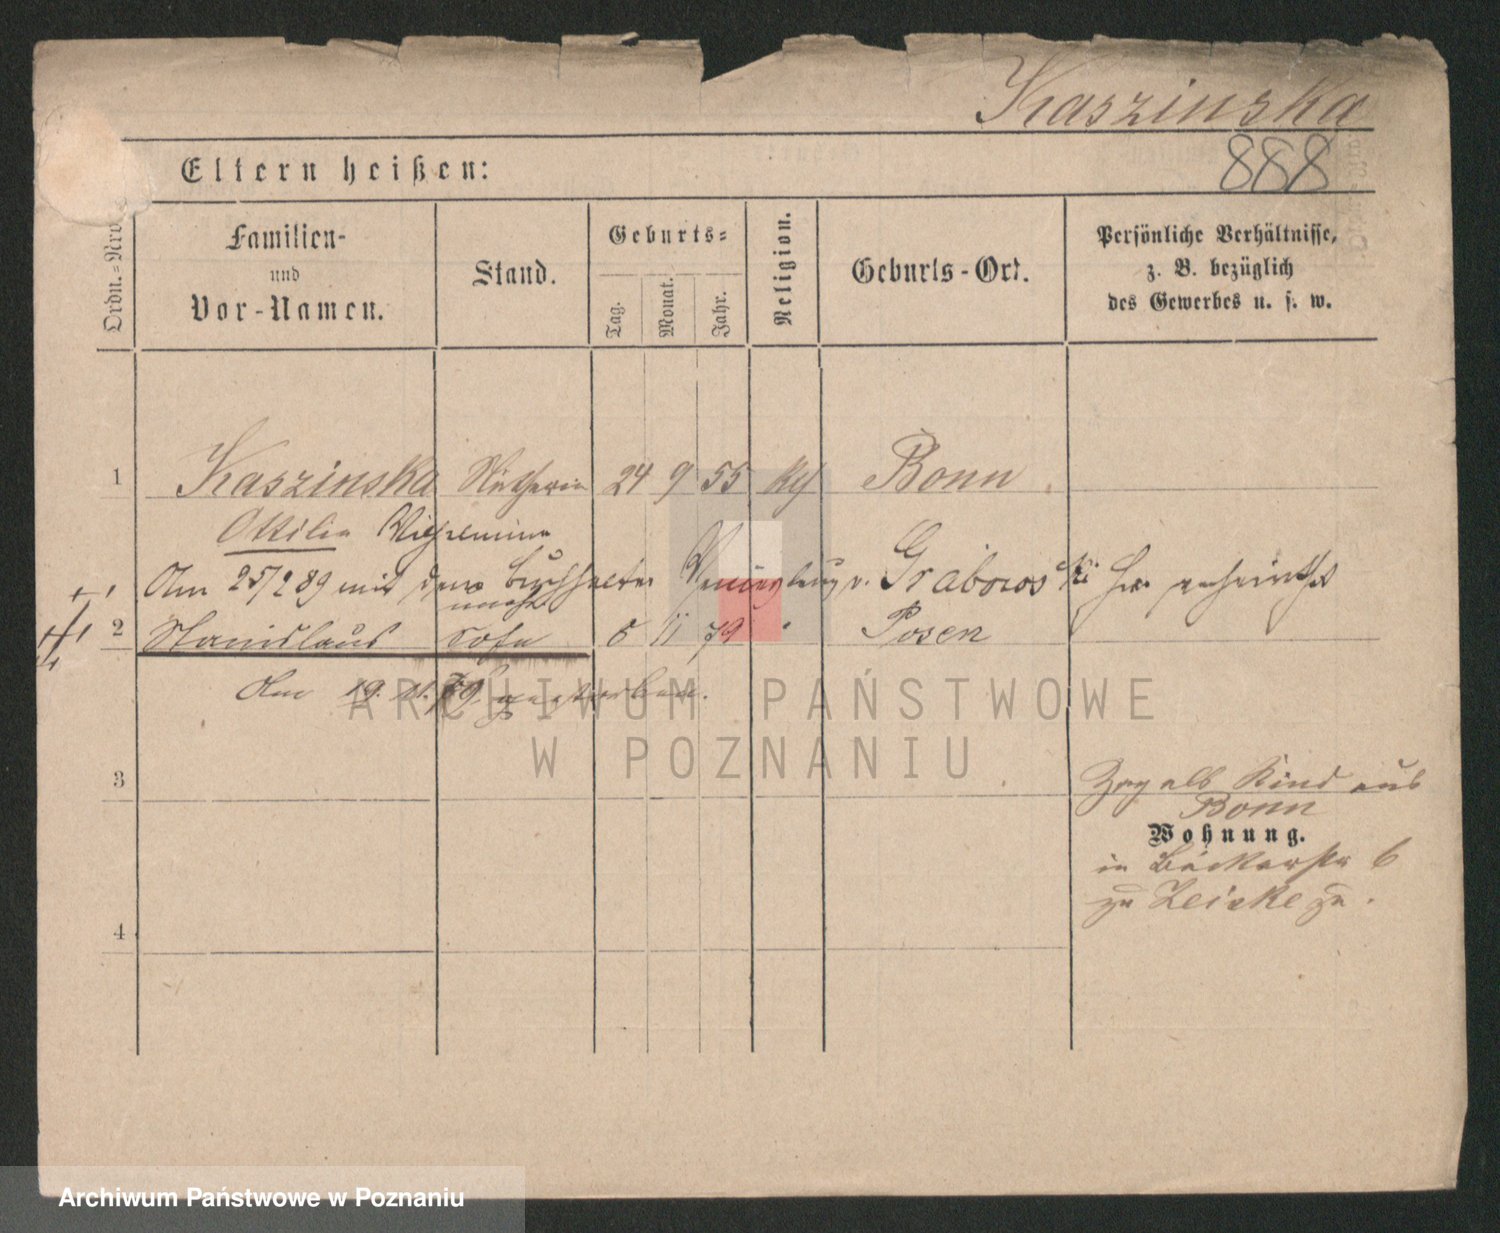 Kaszinska
888
Eltern heißen:
Ordn.=Nro.
Familien-
und
Vor-Namen.
Stand.
Geburts=
Tag.
Monat.
Jahr.
Religion.
Geburts-Ort.
Persönliche Verhältnisse,
z. B. bezüglich
des Gewerbes u. s. w.
1 Kaszinska 24 9 55 Bonn
Ottilie Wilhelmine
Am 25/2 89 mit dem Buchhalter v. Grabowski
unehl
2 Stanislaus Sohn 6 11 79 " Posen
Am 19. 11. 79 gestorben.
3
Zog als Kind aus
Bonn
Wohnung.
in Bäckerstr 6
zu
4
ARCHIWUM PAŃSTWOWE
W POZNANIU
Archiwum Państwowe w Poznaniu